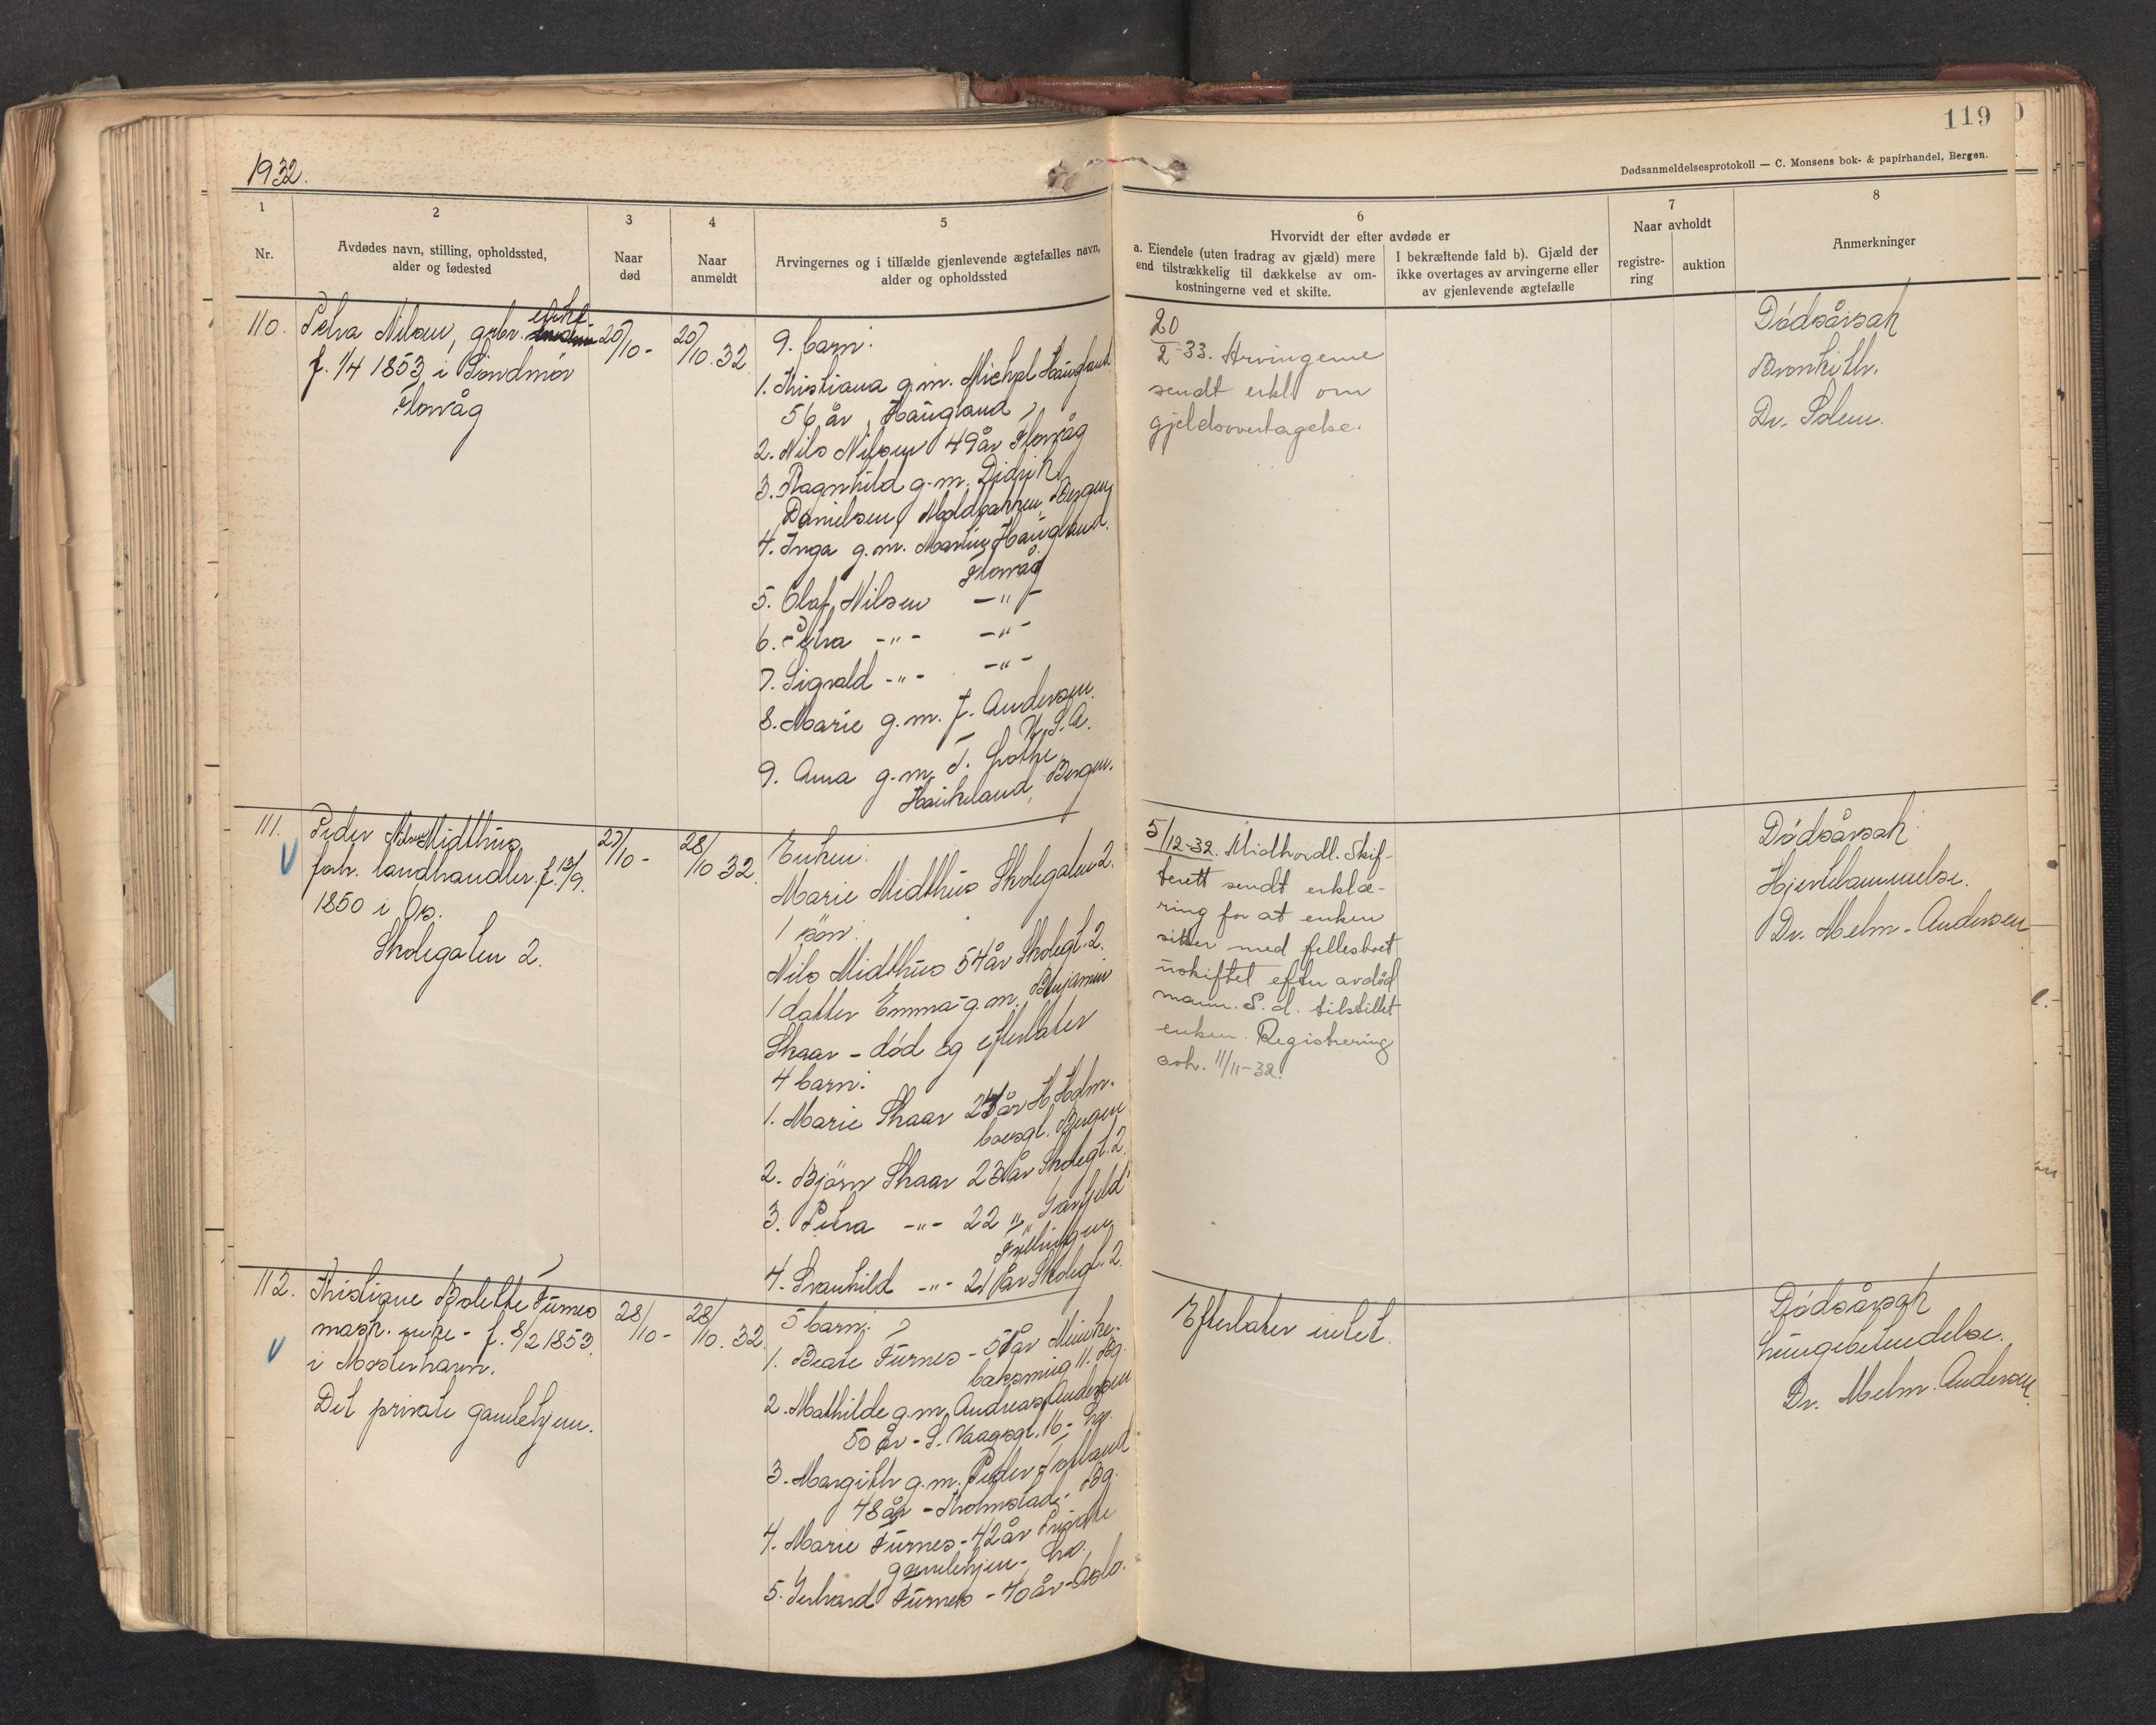 119
Dødsanmeldelsesprotokoll — C. Monsens bok- & papirhandel, Bergen.
1932.
1
Nr.
2
Avdødes navn, stilling, opholdssted,
alder og fødested
3
Naar
død
4
Naar
anmeldt
5
Arvingernes og i tilfælde gjenlevende ægtefælles navn,
alder og opholdssted
6
Hvorvidt der efter avdøde er
a. Eiendele (uten fradrag av gjæld) mere
end tilstrækkelig til dækkelse av om-
kostningerne ved et skifte.
I bekræftende fald b). Gjæld der
ikke overtages av arvingerne eller
av gjenlevende ægtefælle
7
Naar avholdt
registre-
ring
auktion
8
Anmerkninger
110.
Petra Nilsen, grbr. enke
f. 1/4 1853 i Søndmør
Florvåg
20/10-
20/10.32
9. barn:
1. Kristiana g.m. Michal Haugland
56 år, Haugland
2. Nils Nilsen 49 år Florvåg
3. Ragnhild g.m. Didrik
Danielsen, Moldbakken, Bergen
4. Inga g.m. Martin Haugland.
Florvåg
5. Olaf Nilsen -"-
6. Petra -"- -"-
7. Sigvald -"- -"-
8. Marie g.m. J. Andersen.
U.S.A.
9. Anna g.m. T. Grothe
Haukeland, Bergen.
20/2-33. Arvingerne
sendt erkl. om
gjeldsovertagelse.
Dødsårsak
Bronkitt.
Dr. Solem.
111.
Peder Midthus
forh. landhandler. f. 13/9.
1850 i Os.
Skolegaten 2.
27/10-
28/10 32.
Enken:
Marie Midthus Skolegaten 2.
1 søn:
Nils Midthus 54 år Skolegt. 2.
1 datter Emma g.m. Benjamin
Skaar - død og efterlater
4 barn:
1. Marie Skaar år H. Holm-
boesgt. Bergen
2. Bjørn Skaar 23 år Skolegt. 2.
3. Petra -"- 22 "
4. Svanhild -"- 21 år Skolegt. 2.
5/12-32. Midhordl. Skif-
terett sendt erklæ-
ring for at enken
sitter med fellesboet
uskiftet efter avdød
mann. S. d. tilstillet
enken. Registrering
avh. 11/11-32.
Dødsårsak
Hjertelammelse.
Dr. Melm-Andersen
112.
Kristiane Bolette Furnes
mask. enke - f. 8/2 1853.
i Mosterhavn.
Det private gamlehjem.
28/10-
28/10.32
5 barn:
1. Beate Furnes - 51 år Munke-
baksmug 11. Bg.
2. Mathilde g.m. Andreas Andersen
50 år - S. Vaagsgt. 16 -
3. Margith g.m. Peder
48 år - Holmstad, Bg.
4. Marie Furnes - 42 år Private
gamlehjem -
5. Gerhard Furnes - 40 år - Oslo.
Efterlater intet.
Dødsårsak
lungebetendelse.
Dr. Melm-Andersen.